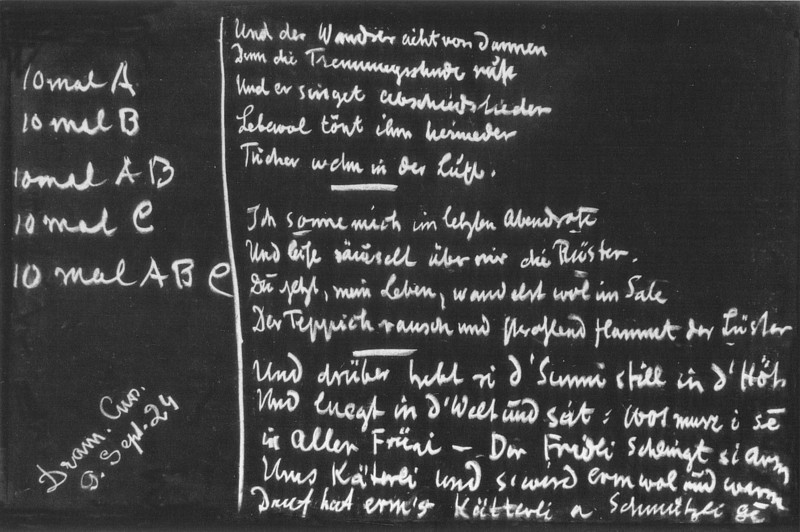 10 mal A
10 mal B
10 mal A B
10 mal C
10 mal A B C
Dram. Curs.
9. Sept. 24
Und der Wandrer zieht von dannen
Denn die Trennungsstunde ruft
Und er singet Abschiedslieder
Lebewol tönt ihm hernieder
Tücher wehn in der Luft.
Ich sonne mich im letzten Abendrote
Und leise säuselt über mir die Rüster.
Du jetzt, mein Leben, wandelst wol im Sale
Der Teppich rauscht und strahlend flammet der Lüster
Und drüber hebt si d'Sunni still in d'Höh
Und luegt in d'Welt und seit: wol muez i sē
in aller Früni – Der Fridli schlingt si arm
Ums Kätterli und s wird erm wol und warm
Druf hat erm's Kätterli a Schmützli gē